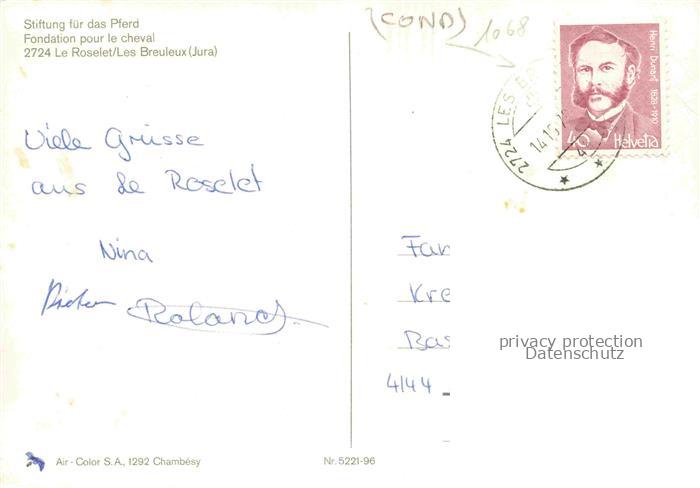 Stiftung für das Pferd
Fondation pour le cheval
2724 Le Roselet/Les Breuleux (Jura)
(COND)
1068
Henri Dunant 1828-1910
40 Helvetia
2724 LES
14.10.
Viele Grüsse
aus Le Roselet
Nina
Dieter
Roland
Fam
Kre
Bas
4144
privacy protection
Datenschutz
Air-Color S.A., 1292 Chambésy
Nr. 5221-96